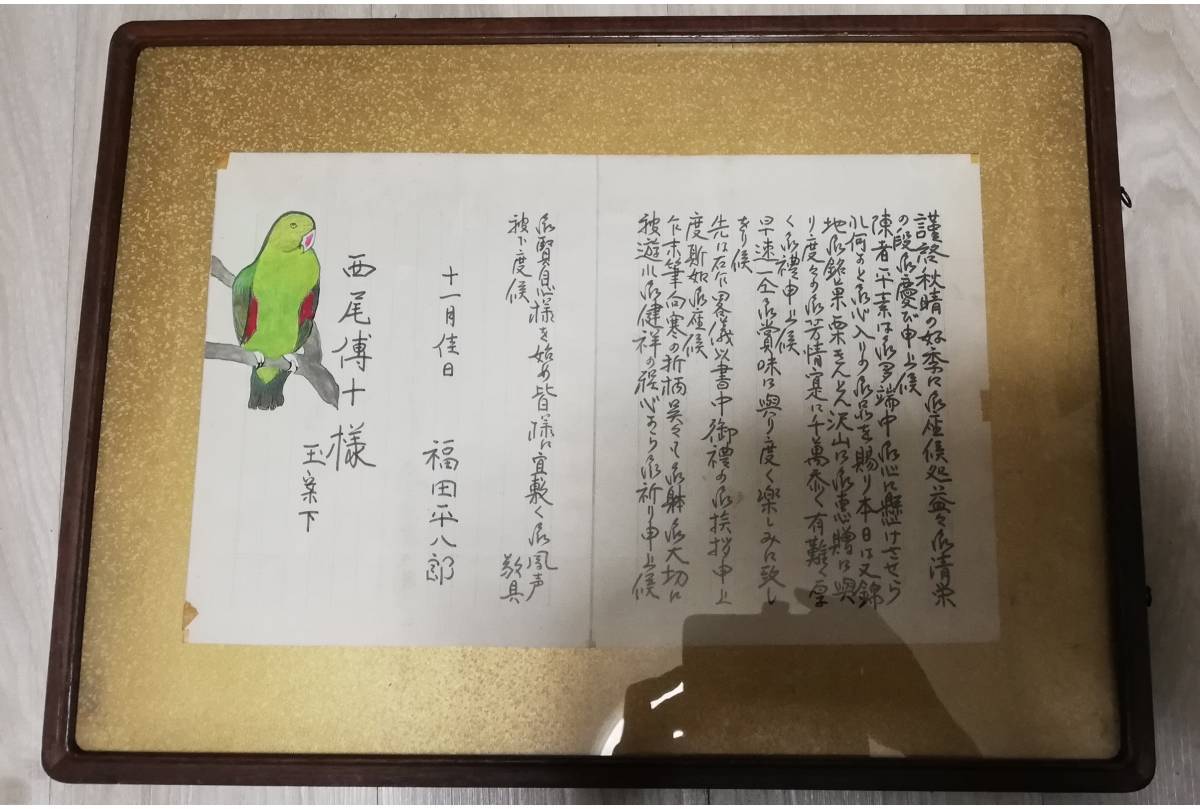 謹啓秋晴の好季に御座候処益々御清栄
の段御慶び申上候
陳者平素は御多端中御心に懸けさせら
れ何かと御心入りの御品を賜り本日は又錦
地御銘菓栗きんとん沢山に御恵贈に與
り度々の御芳情寔に千萬忝く有難く厚
く御禮申上候
早速一仝御賞味に與り度く楽しみに致し
をり候
先は右乍畧儀以書中御禮の御挨拶申上
度斯如御座候
乍末筆向寒の折柄呉々も御躰御大切に
被遊御健祥の程心から御祈り申上候
御賢息様を始め皆様に宜敷く御鳳声
被下度候
敬具
十一月佳日
福田平八郎
西尾傅十様
玉案下